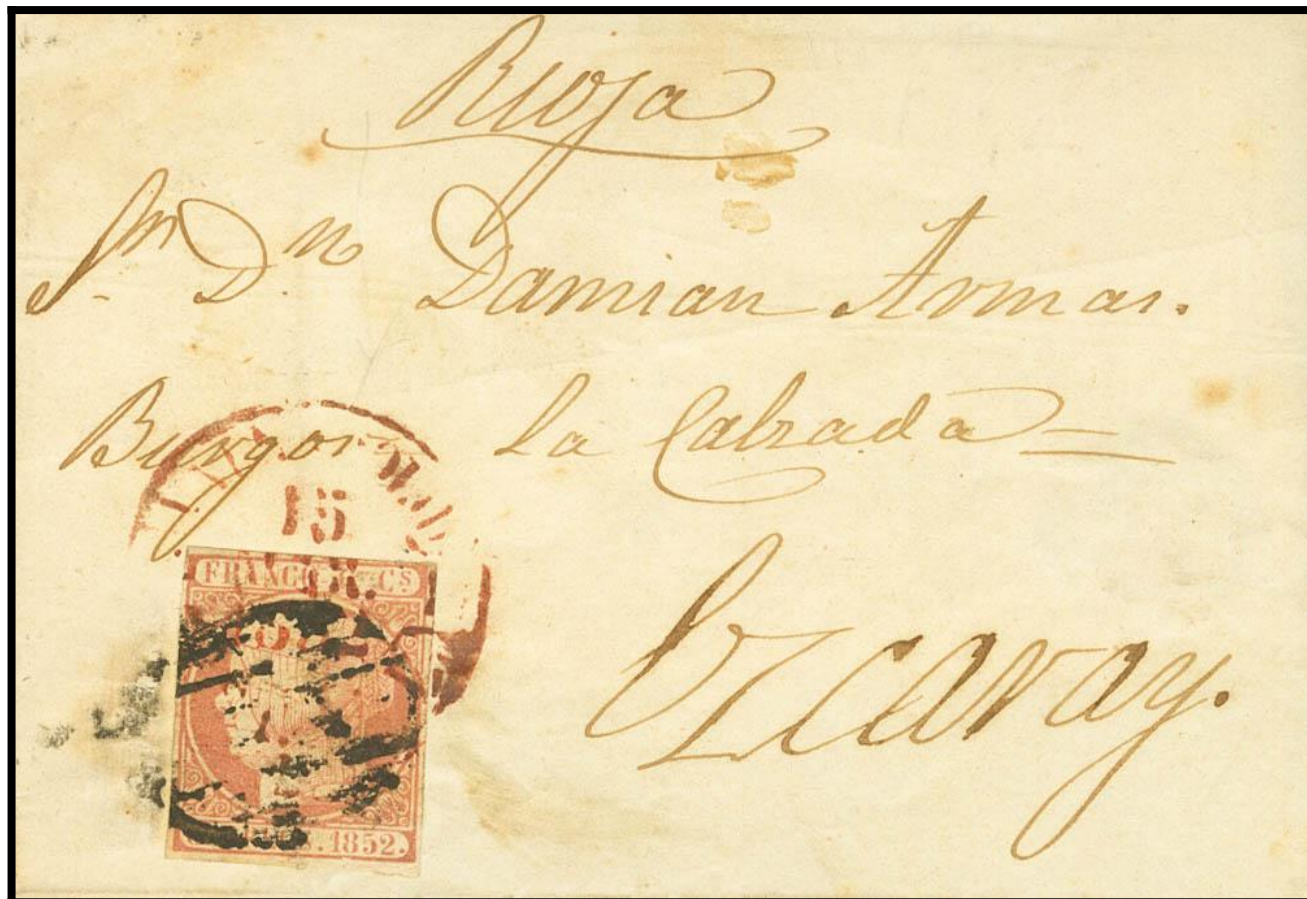 Rioja
Sr. Dn. Damian Armas.
Burgos La Calzada =
Ezcaray.
15
FRANCO CS
1852.